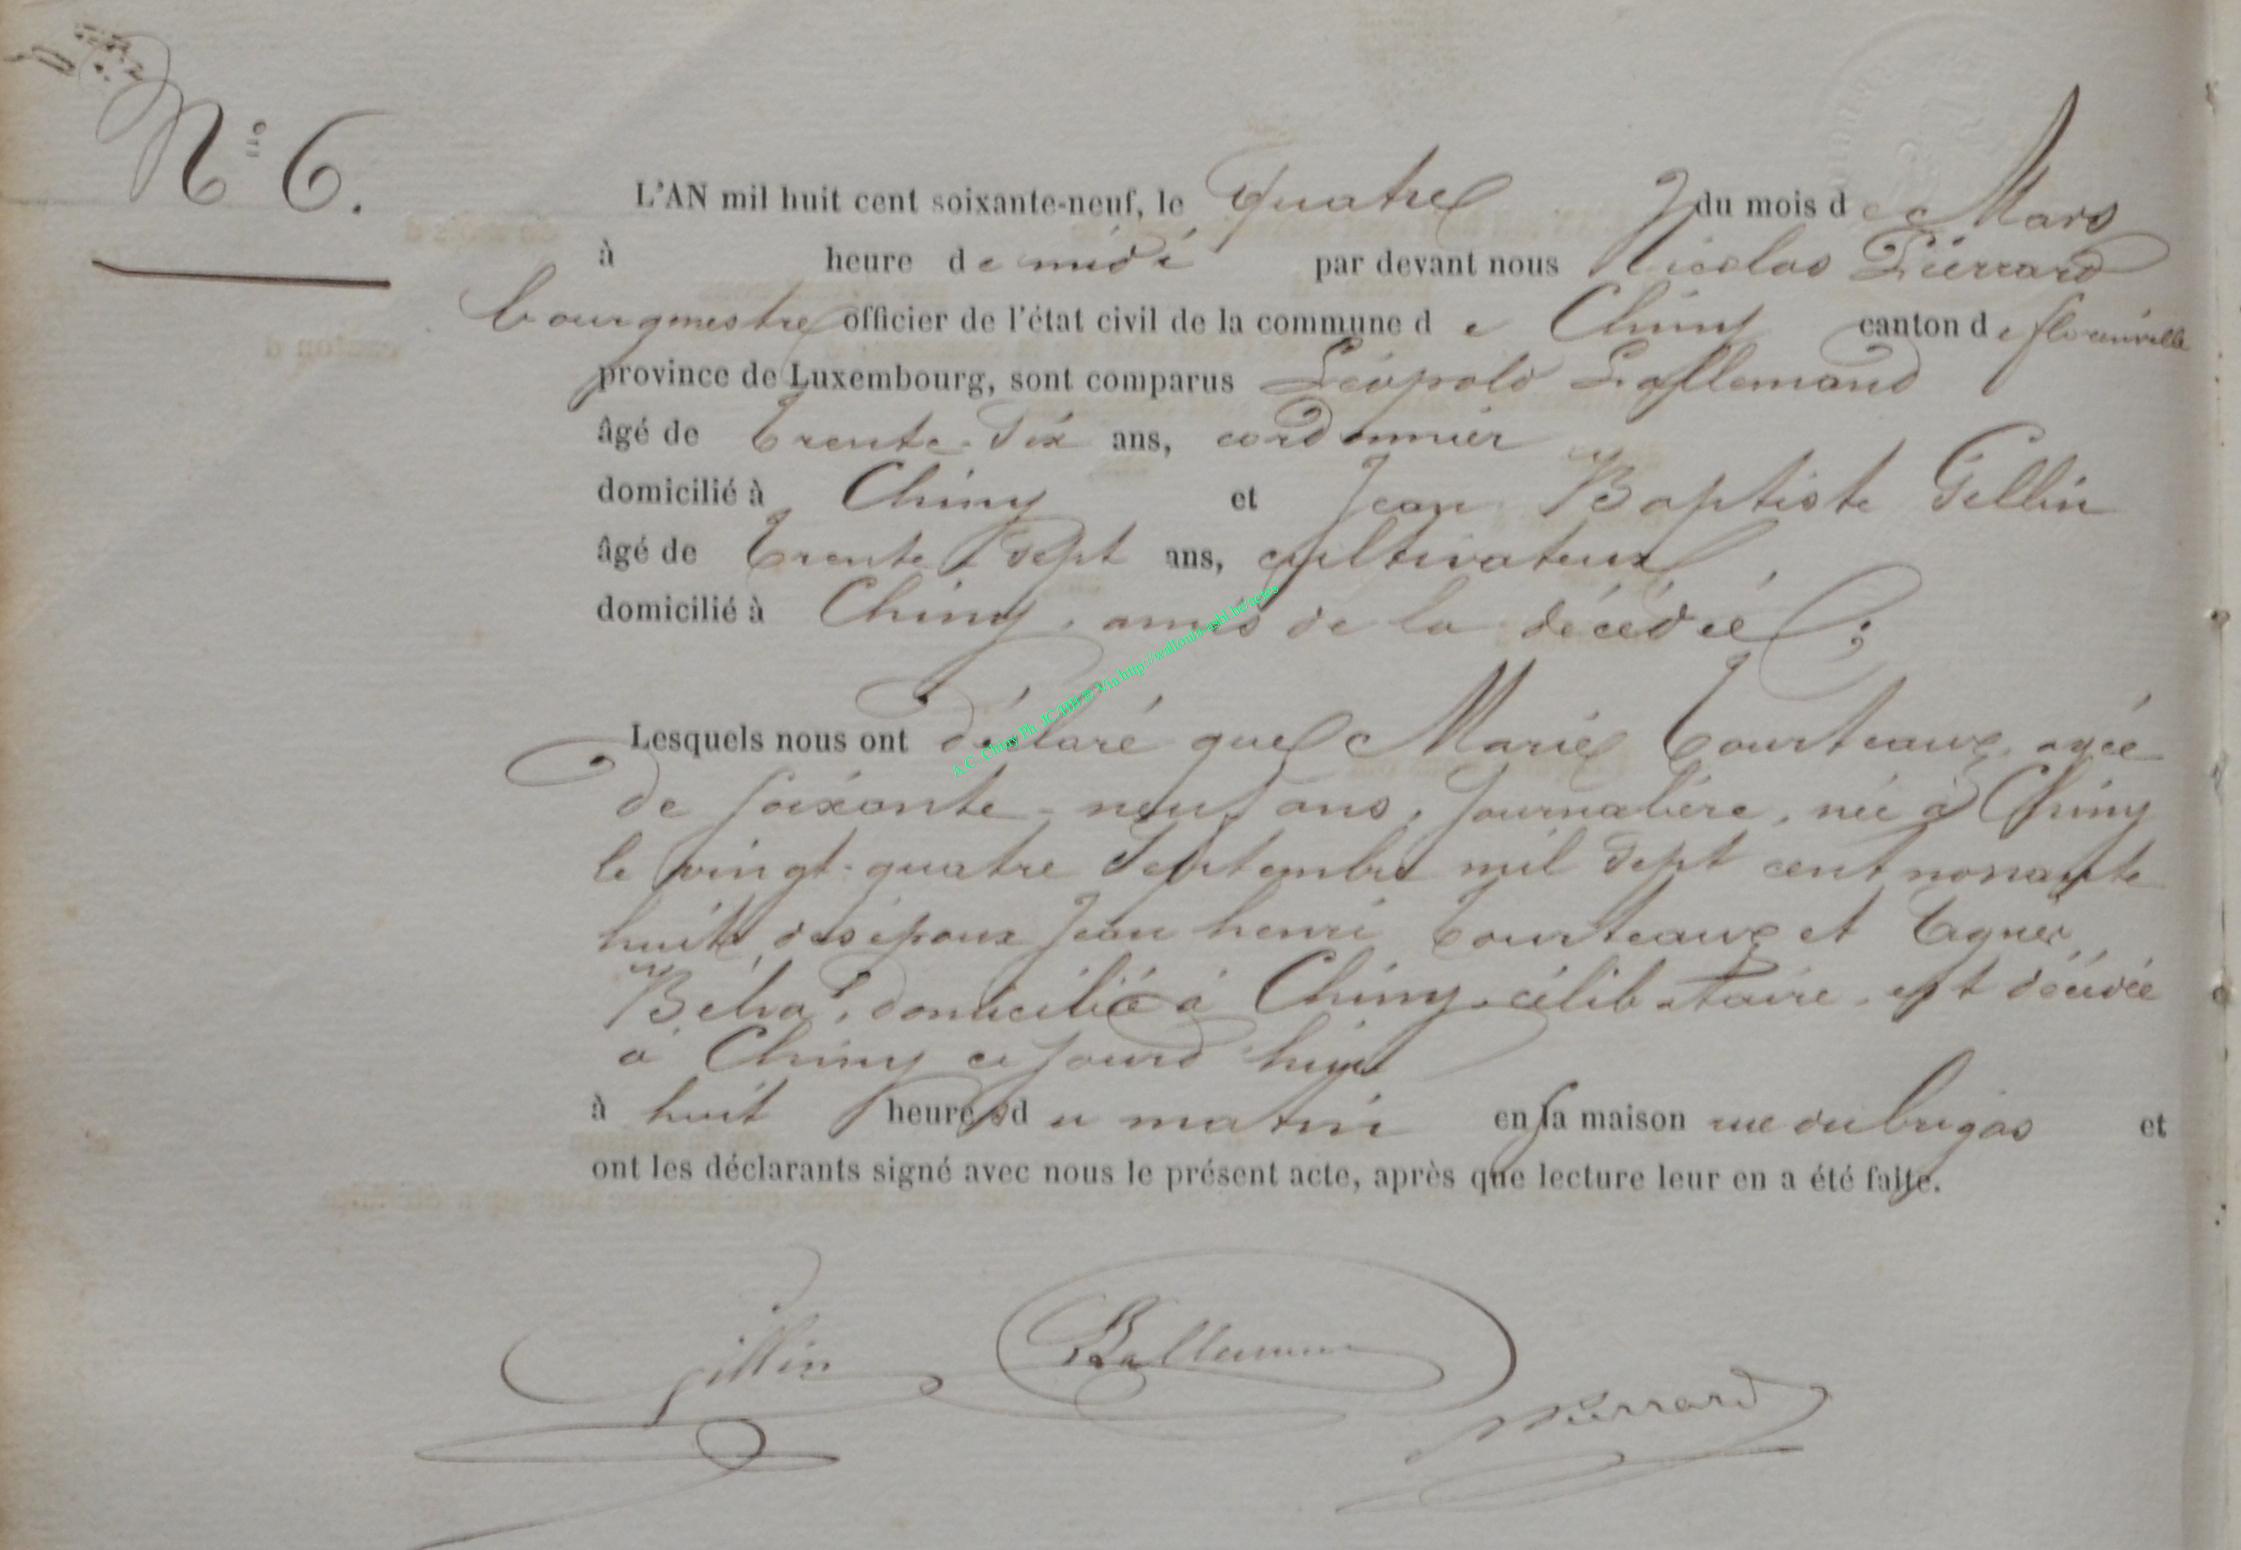 N° 6.
L'AN mil huit cent soixante-neuf, le quatre du mois de Mars
à heure de midi par devant nous Nicolas Pierrard
bourgmestre officier de l'état civil de la commune de Chiny canton de florenville
province de Luxembourg, sont comparus Léopold Lallemand
âgé de trente-six ans, cordonnier
domicilié à Chiny et Jean Baptiste Gillin
âgé de trente sept ans, cultivateur
domicilié à Chiny, amis de la décédée;
Lesquels nous ont déclaré que Marie Tourteaux, agée
de soixante-neuf ans, journalière, née à Chiny
le vingt-quatre Septembre mil sept cent nonante
huit, des époux Jean henri Tourteaux et Agnès
domiciliée à Chiny, célibataire, est décédée
à Chiny cejourd'hui
à huit heures du matin en sa maison rue du et
ont les déclarants signé avec nous le présent acte, après que lecture leur en a été faite.
Gillin Lallemand Pierrard
A.C. Chiny Ph. JC MB @ Via http://wallonia-asbl.be/actes